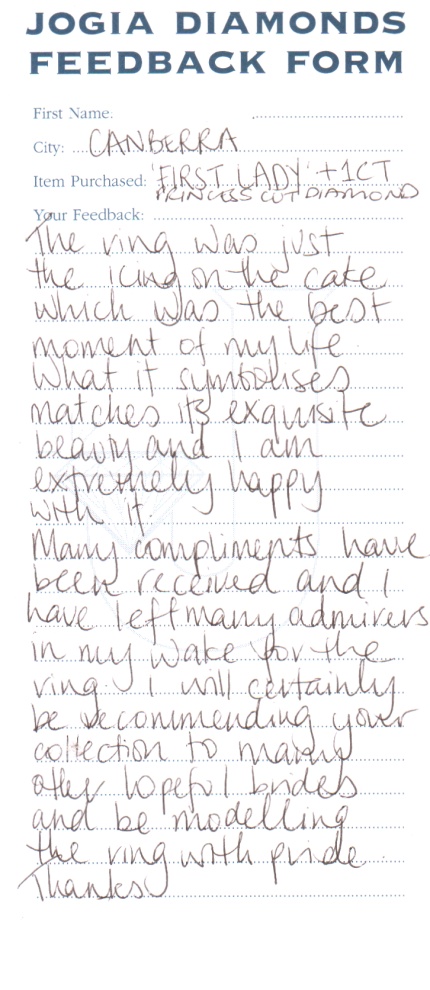 JOGIA DIAMONDS
FEEDBACK FORM
First Name:
City: CANBERRA
Item Purchased: 'FIRST LADY' + 1CT
PRINCESS CUT DIAMOND
Your Feedback:
The ring was just
the icing on the cake
which was the best
moment of my life.
What it symbolises
matches its exquisite
beauty and I am
extremely happy
with it.
Many compliments have
been received and I
have left many admirers
in my wake for the
ring. I will certainly
be recommending your
collection to many
other hopeful brides
and be modelling
the ring with pride.
Thanks